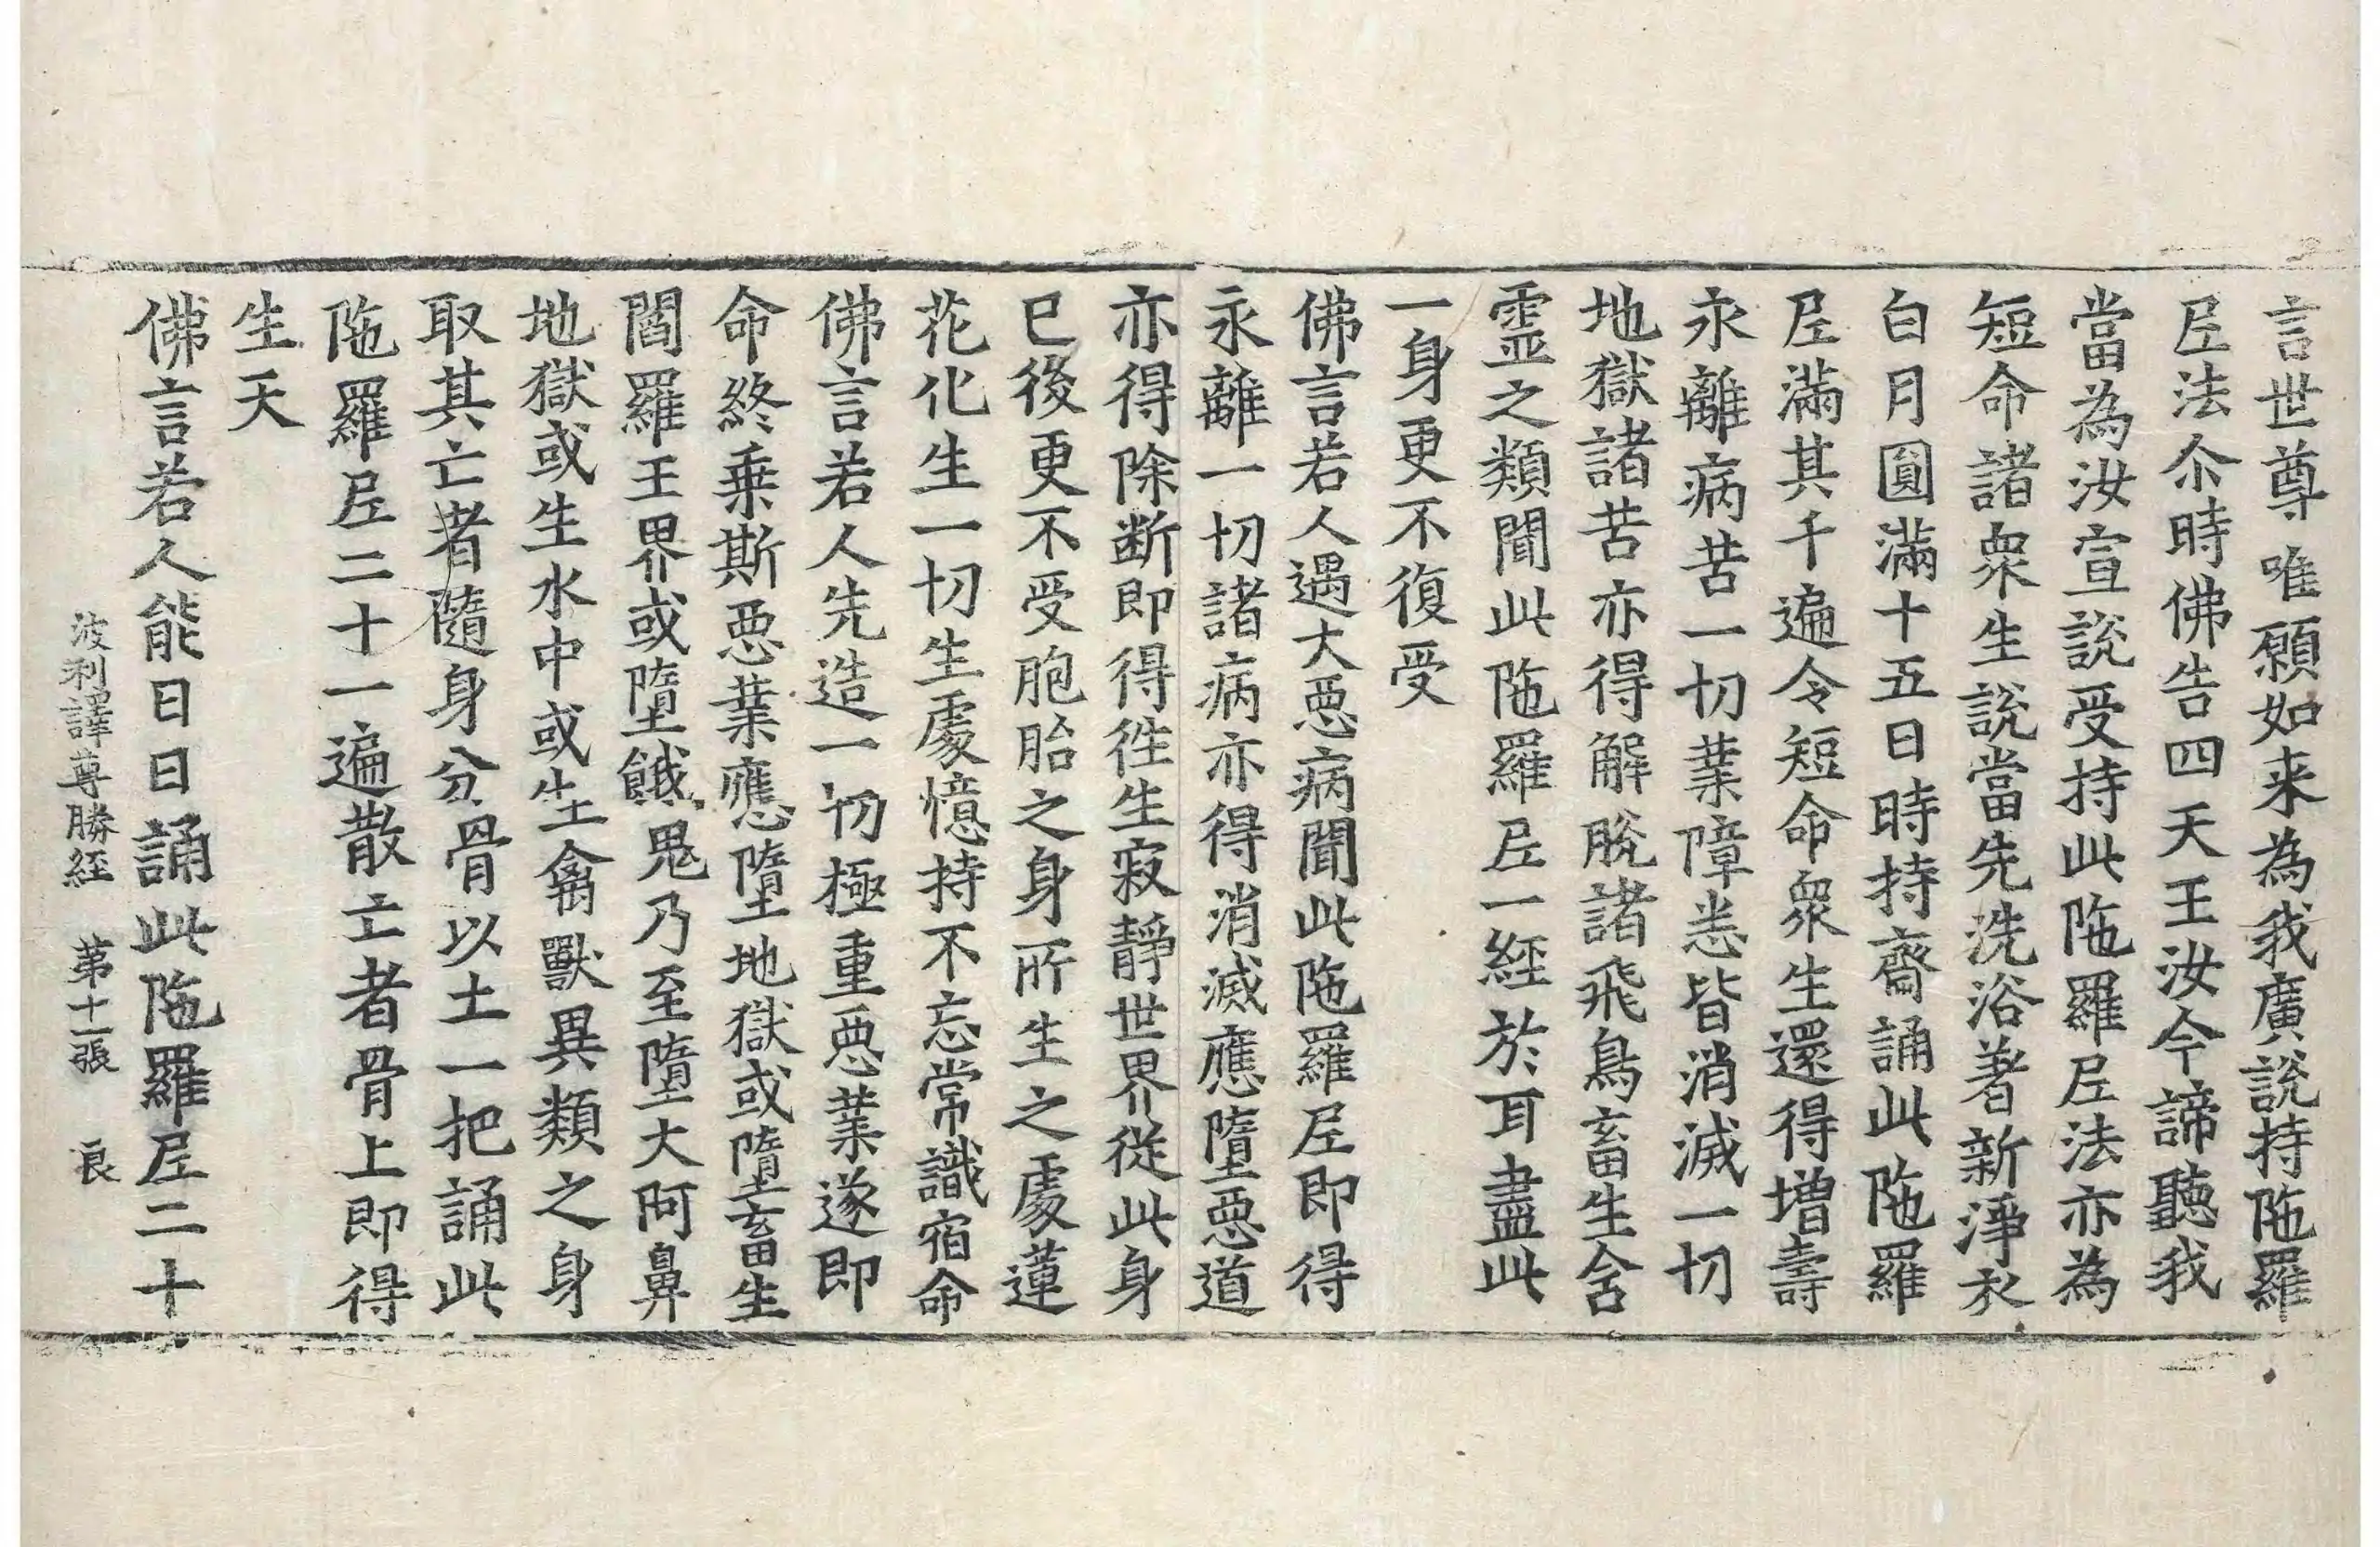 言世尊唯願如来為我廣說持陁羅
尼法尒時佛告四天王汝今諦聽我
當為汝宣說受持此陁羅尼法亦為
短命諸衆生說當先洗浴著新淨衣
白月圓滿十五日時持齋誦此陁羅
尼滿其千遍令短命衆生還得增壽
永離病苦一切業障悉皆消滅一切
地獄諸苦亦得解脫諸飛鳥畜生含
靈之類聞此陁羅尼一經於耳盡此
一身更不復受
佛言若人遇大惡病聞此陁羅尼即得
永離一切諸病亦得消滅應墮惡道
亦得除断即得往生寂靜世界從此身
已後更不受胞胎之身所生之處蓮
花化生一切生處憶持不忘常識宿命
佛言若人先造一切極重惡業遂即
命終乗斯惡業應墮地獄或墮畜生
閻羅王界或墮餓鬼乃至墮大阿鼻
地獄或生水中或生禽獸異類之身
取其亡者隨身分骨以土一把誦此
陁羅尼二十一遍散亡者骨上即得
生天
佛言若人能日日誦此陁羅尼二十
波利譯尊勝経 第十一張 良